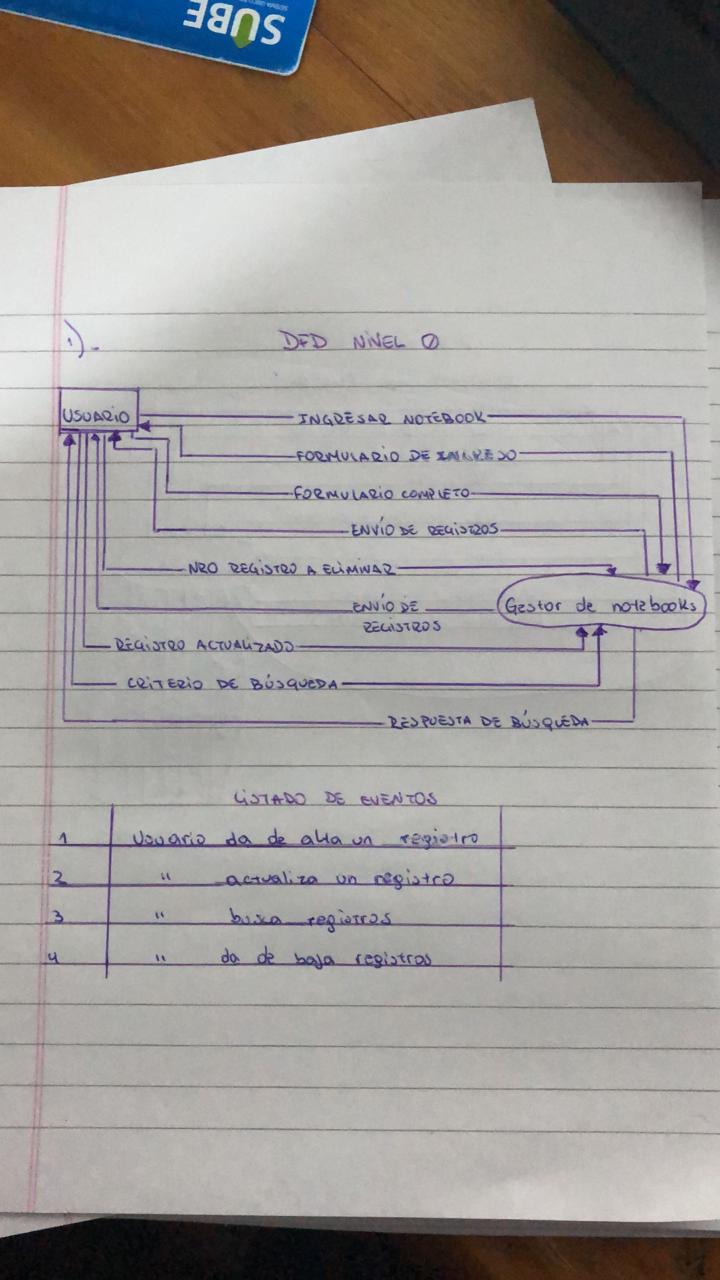 SUBE
1).-
DFD NIVEL 0
USUARIO
INGRESAR NOTEBOOK
FORMULARIO DE INGRESO
FORMULARIO COMPLETO
ENVÍO DE REGISTROS
NRO REGISTRO A ELIMINAR
Gestor de notebooks
ENVÍO DE
REGISTROS
REGISTRO ACTUALIZADO
CRITERIO DE BÚSQUEDA
RESPUESTA DE BÚSQUEDA
LISTADO DE EVENTOS
1 Usuario da de alta un registro
2 " actualiza un registro
3 " busca registros
4 " da de baja registros